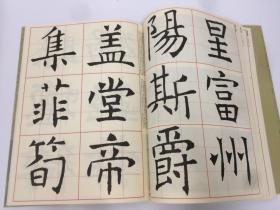 星富州
陽斯爵
盖堂帝
集菲筍